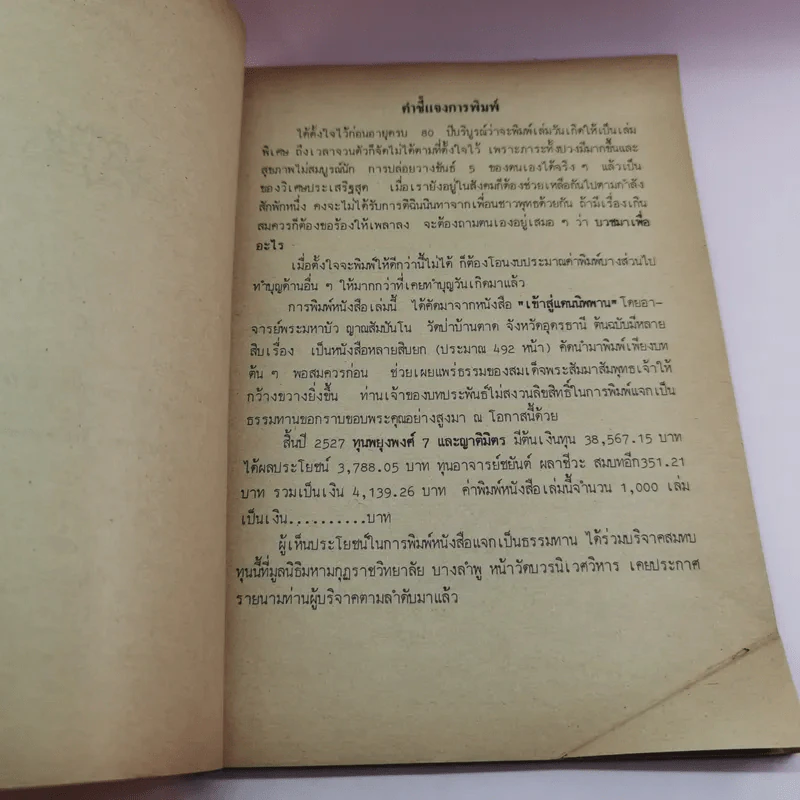 คำชี้แจงการพิมพ์
ได้ตั้งใจไว้ก่อนอายุครบ 80 ปีบริบูรณ์ว่าจะพิมพ์เล่มวันเกิดให้เป็นเล่ม
พิเศษ ถึงเวลาจวนตัวก็จัดไม่ได้ตามที่ตั้งใจไว้ เพราะภาระทั้งปวงมีมากขึ้นและ
สุขภาพไม่สมบูรณ์นัก การปล่อยวางขันธ์ 5 ของตนเองได้จริง ๆ แล้วเป็น
ของวิเศษประเสริฐสุด เมื่อเรายังอยู่ในสังคมก็ต้องช่วยเหลือกันไปตามกำลัง
สักพักหนึ่ง คงจะไม่ได้รับการติฉินนินทาจากเพื่อนชาวพุทธด้วยกัน ถ้ามีเรื่องเกิน
สมควรก็ต้องขอร้องให้เพลาลง จะต้องถามตนเองอยู่เสมอ ๆ ว่า บวชมาเพื่อ
อะไร
เมื่อตั้งใจจะพิมพ์ให้ดีกว่านี้ไม่ได้ ก็ต้องโอนงบประมาณค่าพิมพ์บางส่วนไป
ทำบุญด้านอื่น ๆ ให้มากกว่าที่เคยทำบุญวันเกิดมาแล้ว
การพิมพ์หนังสือเล่มนี้ ได้คัดมาจากหนังสือ "เข้าสู่แดนนิพพาน" โดยอา-
จารย์พระมหาบัว ญาณสัมปันโน วัดป่าบ้านตาด จังหวัดอุดรธานี ต้นฉบับมีหลาย
สิบเรื่อง เป็นหนังสือหลายสิบยก (ประมาณ 492 หน้า) คัดนำมาพิมพ์เพียงบท
ต้น ๆ พอสมควรก่อน ช่วยเผยแพร่ธรรมของสมเด็จพระสัมมาสัมพุทธเจ้าให้
กว้างขวางยิ่งขึ้น ท่านเจ้าของบทประพันธ์ไม่สงวนลิขสิทธิ์ในการพิมพ์แจกเป็น
ธรรมทานขอกราบขอบพระคุณอย่างสูงมา ณ โอกาสนี้ด้วย
สิ้นปี 2527 ทุนพยุงพงศ์ 7 และญาติมิตร มีต้นเงินทุน 38,567.15 บาท
ได้ผลประโยชน์ 3,788.05 บาท ทุนอาจารย์ชยันต์ ผลาชีวะ สมบทอีก351.21
บาท รวมเป็นเงิน 4,139.26 บาท ค่าพิมพ์หนังสือเล่มนี้จำนวน 1,000 เล่ม
เป็นเงิน..........บาท
ผู้เห็นประโยชน์ในการพิมพ์หนังสือแจกเป็นธรรมทาน ได้ร่วมบริจาคสมทบ
ทุนนี้ที่มูลนิธิมหามกุฏราชวิทยาลัย บางลำพู หน้าวัดบวรนิเวศวิหาร เคยประกาศ
รายนามท่านผู้บริจาคตามลำดับมาแล้ว